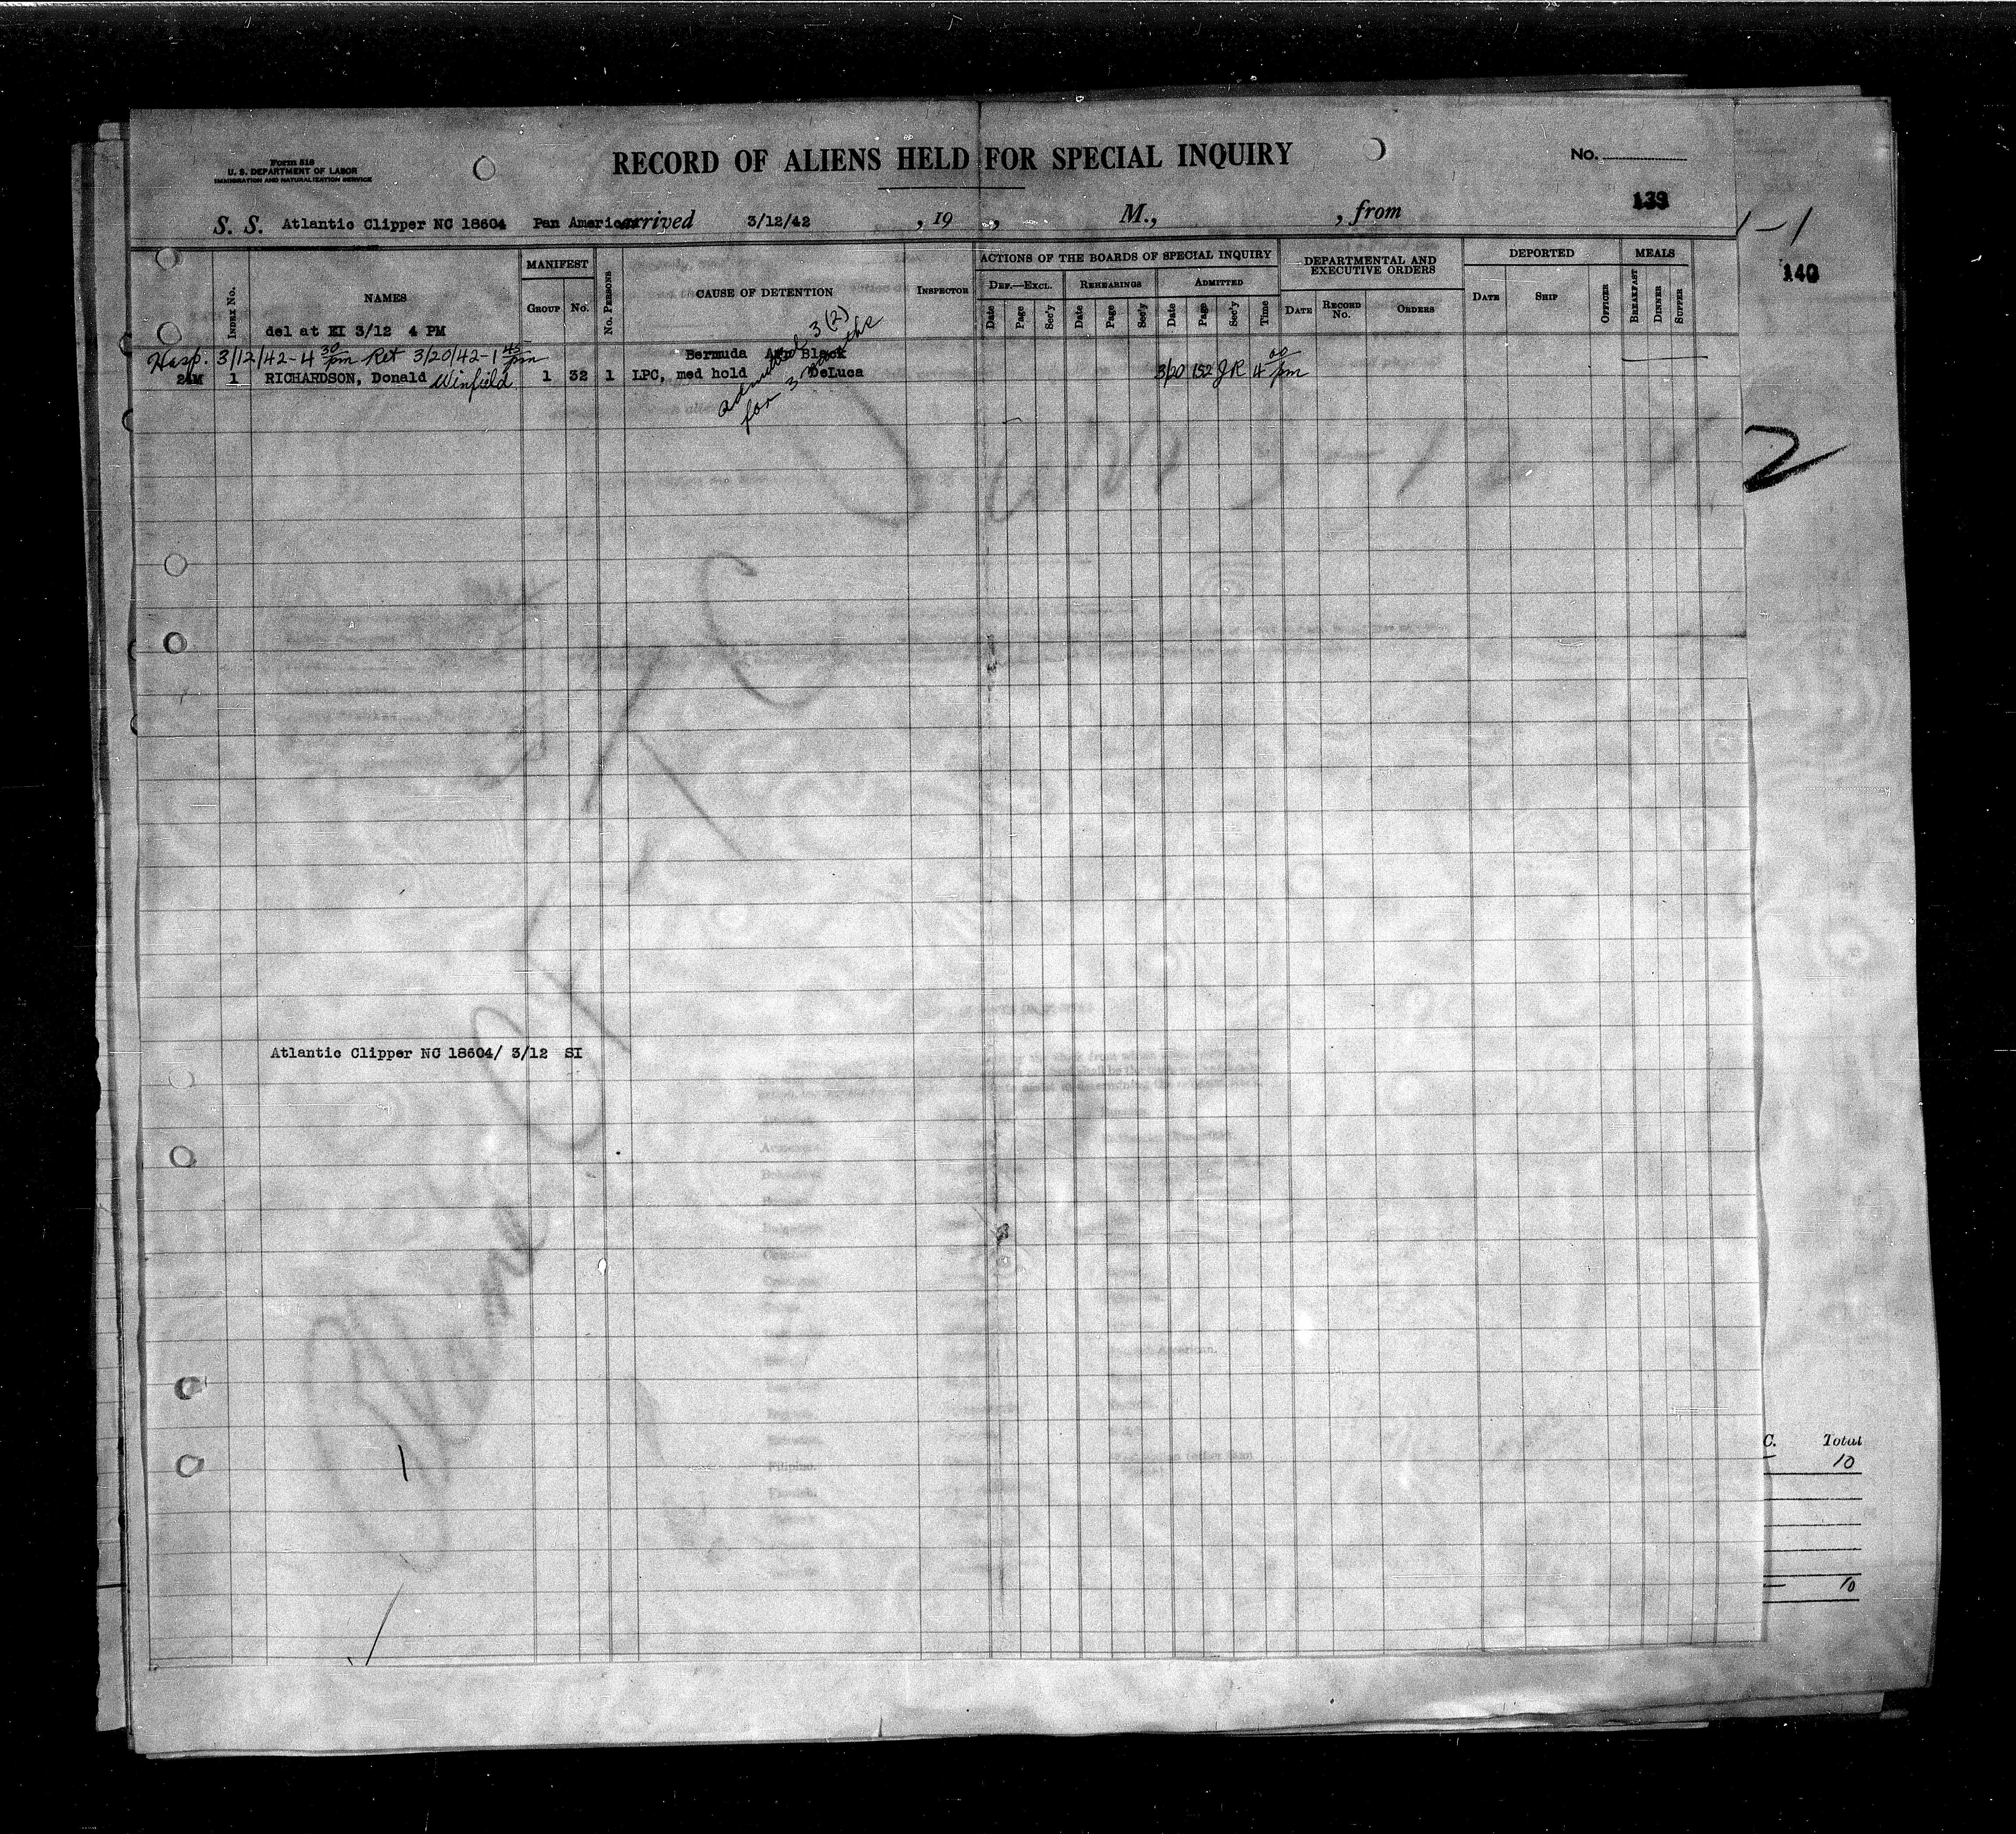 Form 518
U. S. DEPARTMENT OF LABOR
IMMIGRATION AND NATURALIZATION SERVICE
RECORD OF ALIENS HELD FOR SPECIAL INQUIRY
No.
139
S. S. Atlantic Clipper NC 18604 Pan American arrived 3/12/42 , 19 , M., , from
1-1
140
INDEX No.
NAMES
MANIFEST
GROUP No.
No. PERSONS
CAUSE OF DETENTION
INSPECTOR
ACTIONS OF THE BOARDS OF SPECIAL INQUIRY
DEF.—EXCL. REHEARINGS ADMITTED
Date Page Sec'y Date Page Sec'y Date Page Sec'y Time
DEPARTMENTAL AND EXECUTIVE ORDERS
DATE RECORD No. ORDERS
DEPORTED
DATE SHIP OFFICER
MEALS
BREAKFAST DINNER SUPPER
del at EI 3/12 4 PM
Hosp. 3/12/42-4 30 pm Ret 3/20/42-1 45 pm
Bermuda Black
24M 1 RICHARDSON, Donald Winfield 1 32 1 LPC, med hold DeLuca 3/20 152 JR 4 00 pm
admitted 3 (2)
for 3 months
2
Atlantic Clipper NC 18604/ 3/12 SI
Filipino.
1
C. Total
10
10